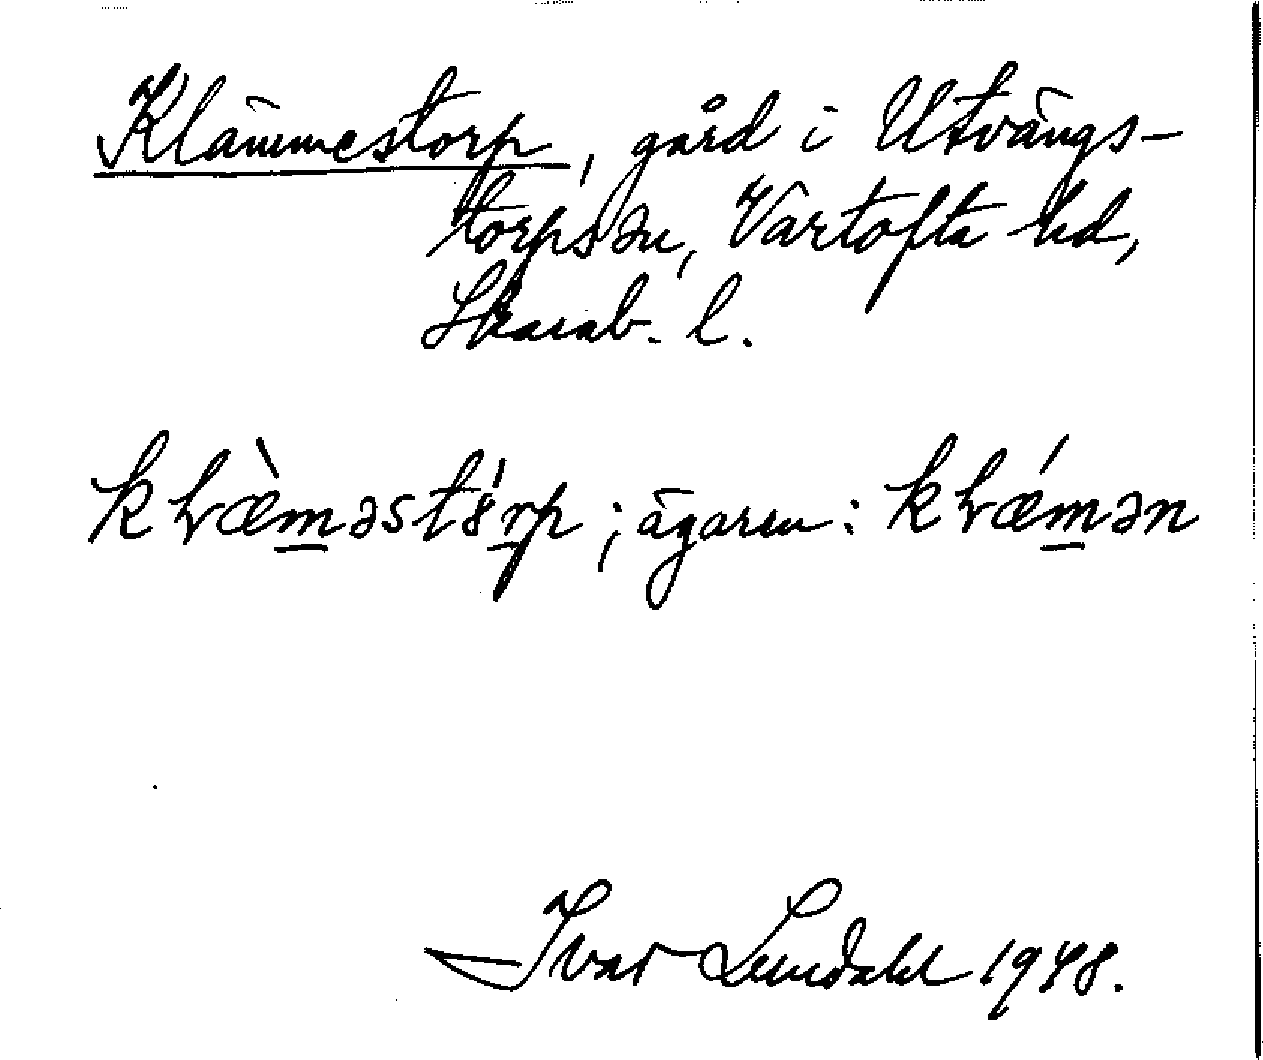 Klämmestorp, gård i Utvängs-
torps sn, Vartofta hd,
Skarab. l.
kƚæ̀m̲əstɞ́r̲p ; ägaren : kƚǽm̲ən
Ivar Lundahl 1948.